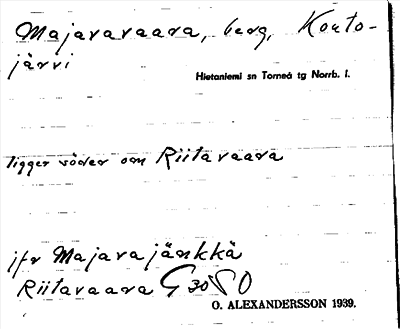 Majavavaara, berg, Konto-
järvi
Hietaniemi sn Torneå tg Norrb. l.
ligger söder om Riitavaara
jfr Majavajänkkä
Riitavaara G 30 S O
O. ALEXANDERSSON 1939.